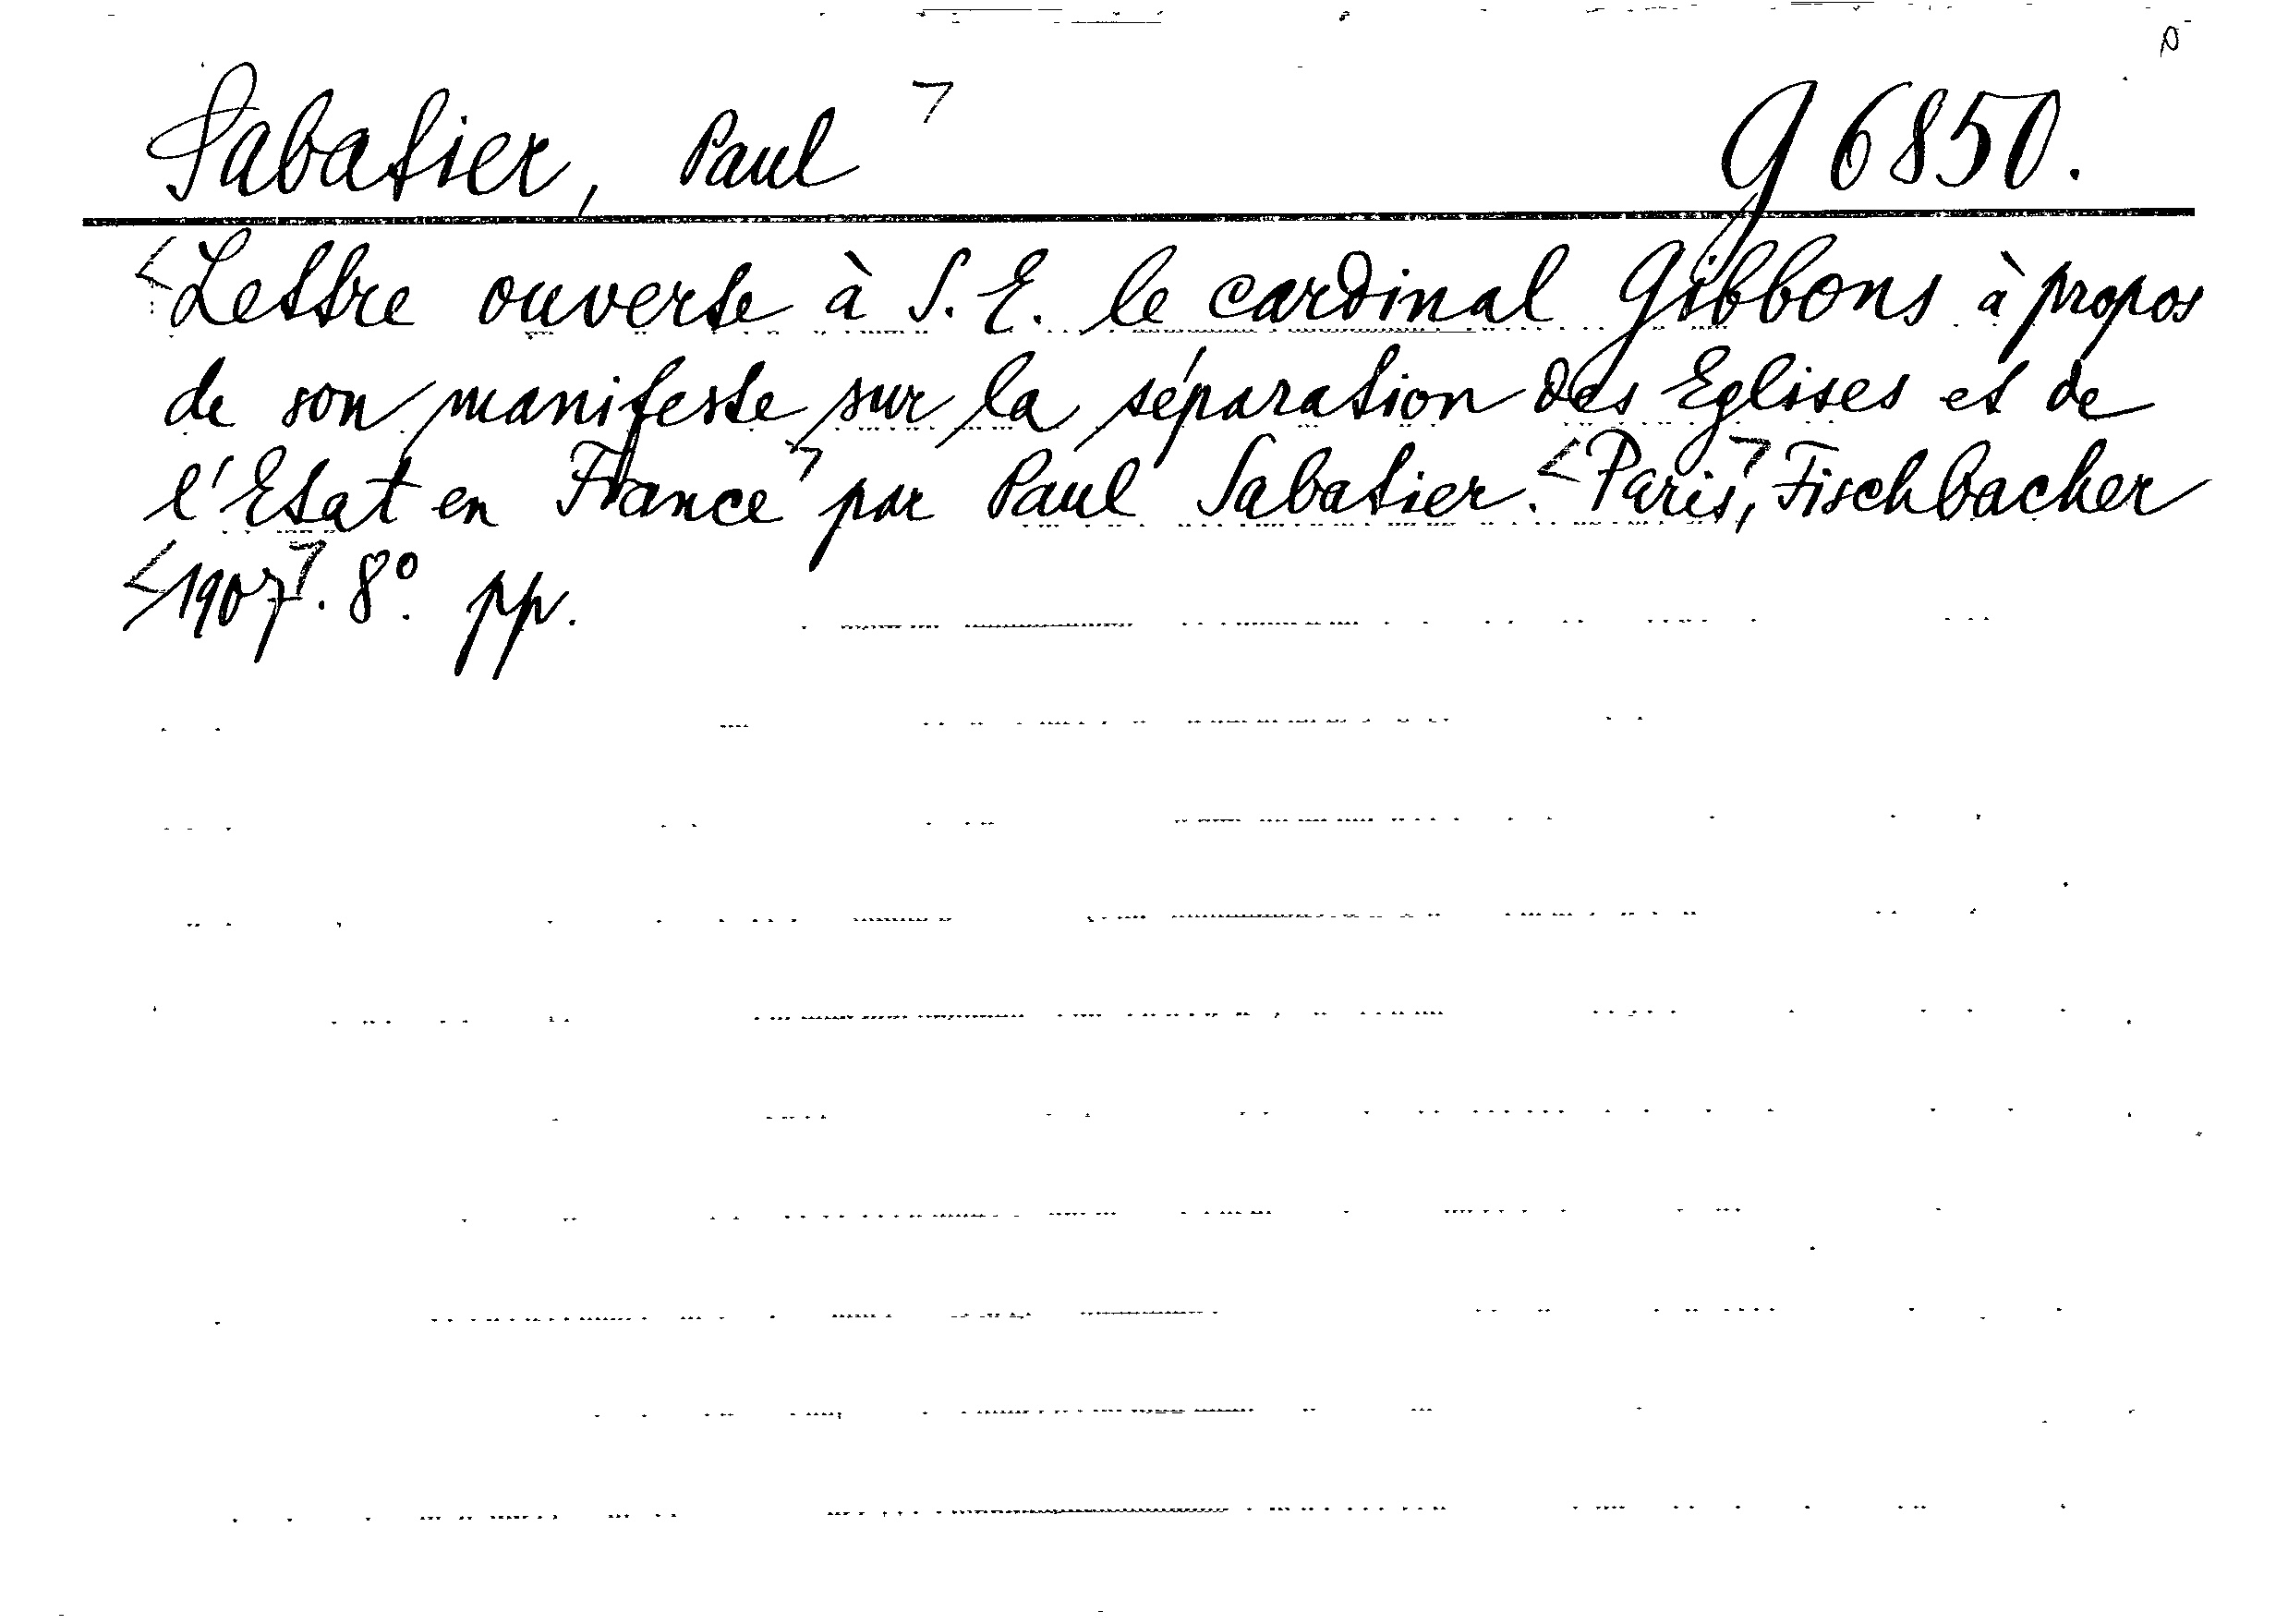 Sabatier, Paul ⁊ G 6850.
<Lettre ouverte à S. E. le cardinal Gibbons à propos
de son manifeste sur la séparation des Eglises et de
l'Etat en France⁊ par Paul Sabatier. <Paris⁊, Fischbacher
<1907⁊. 8°. pp.